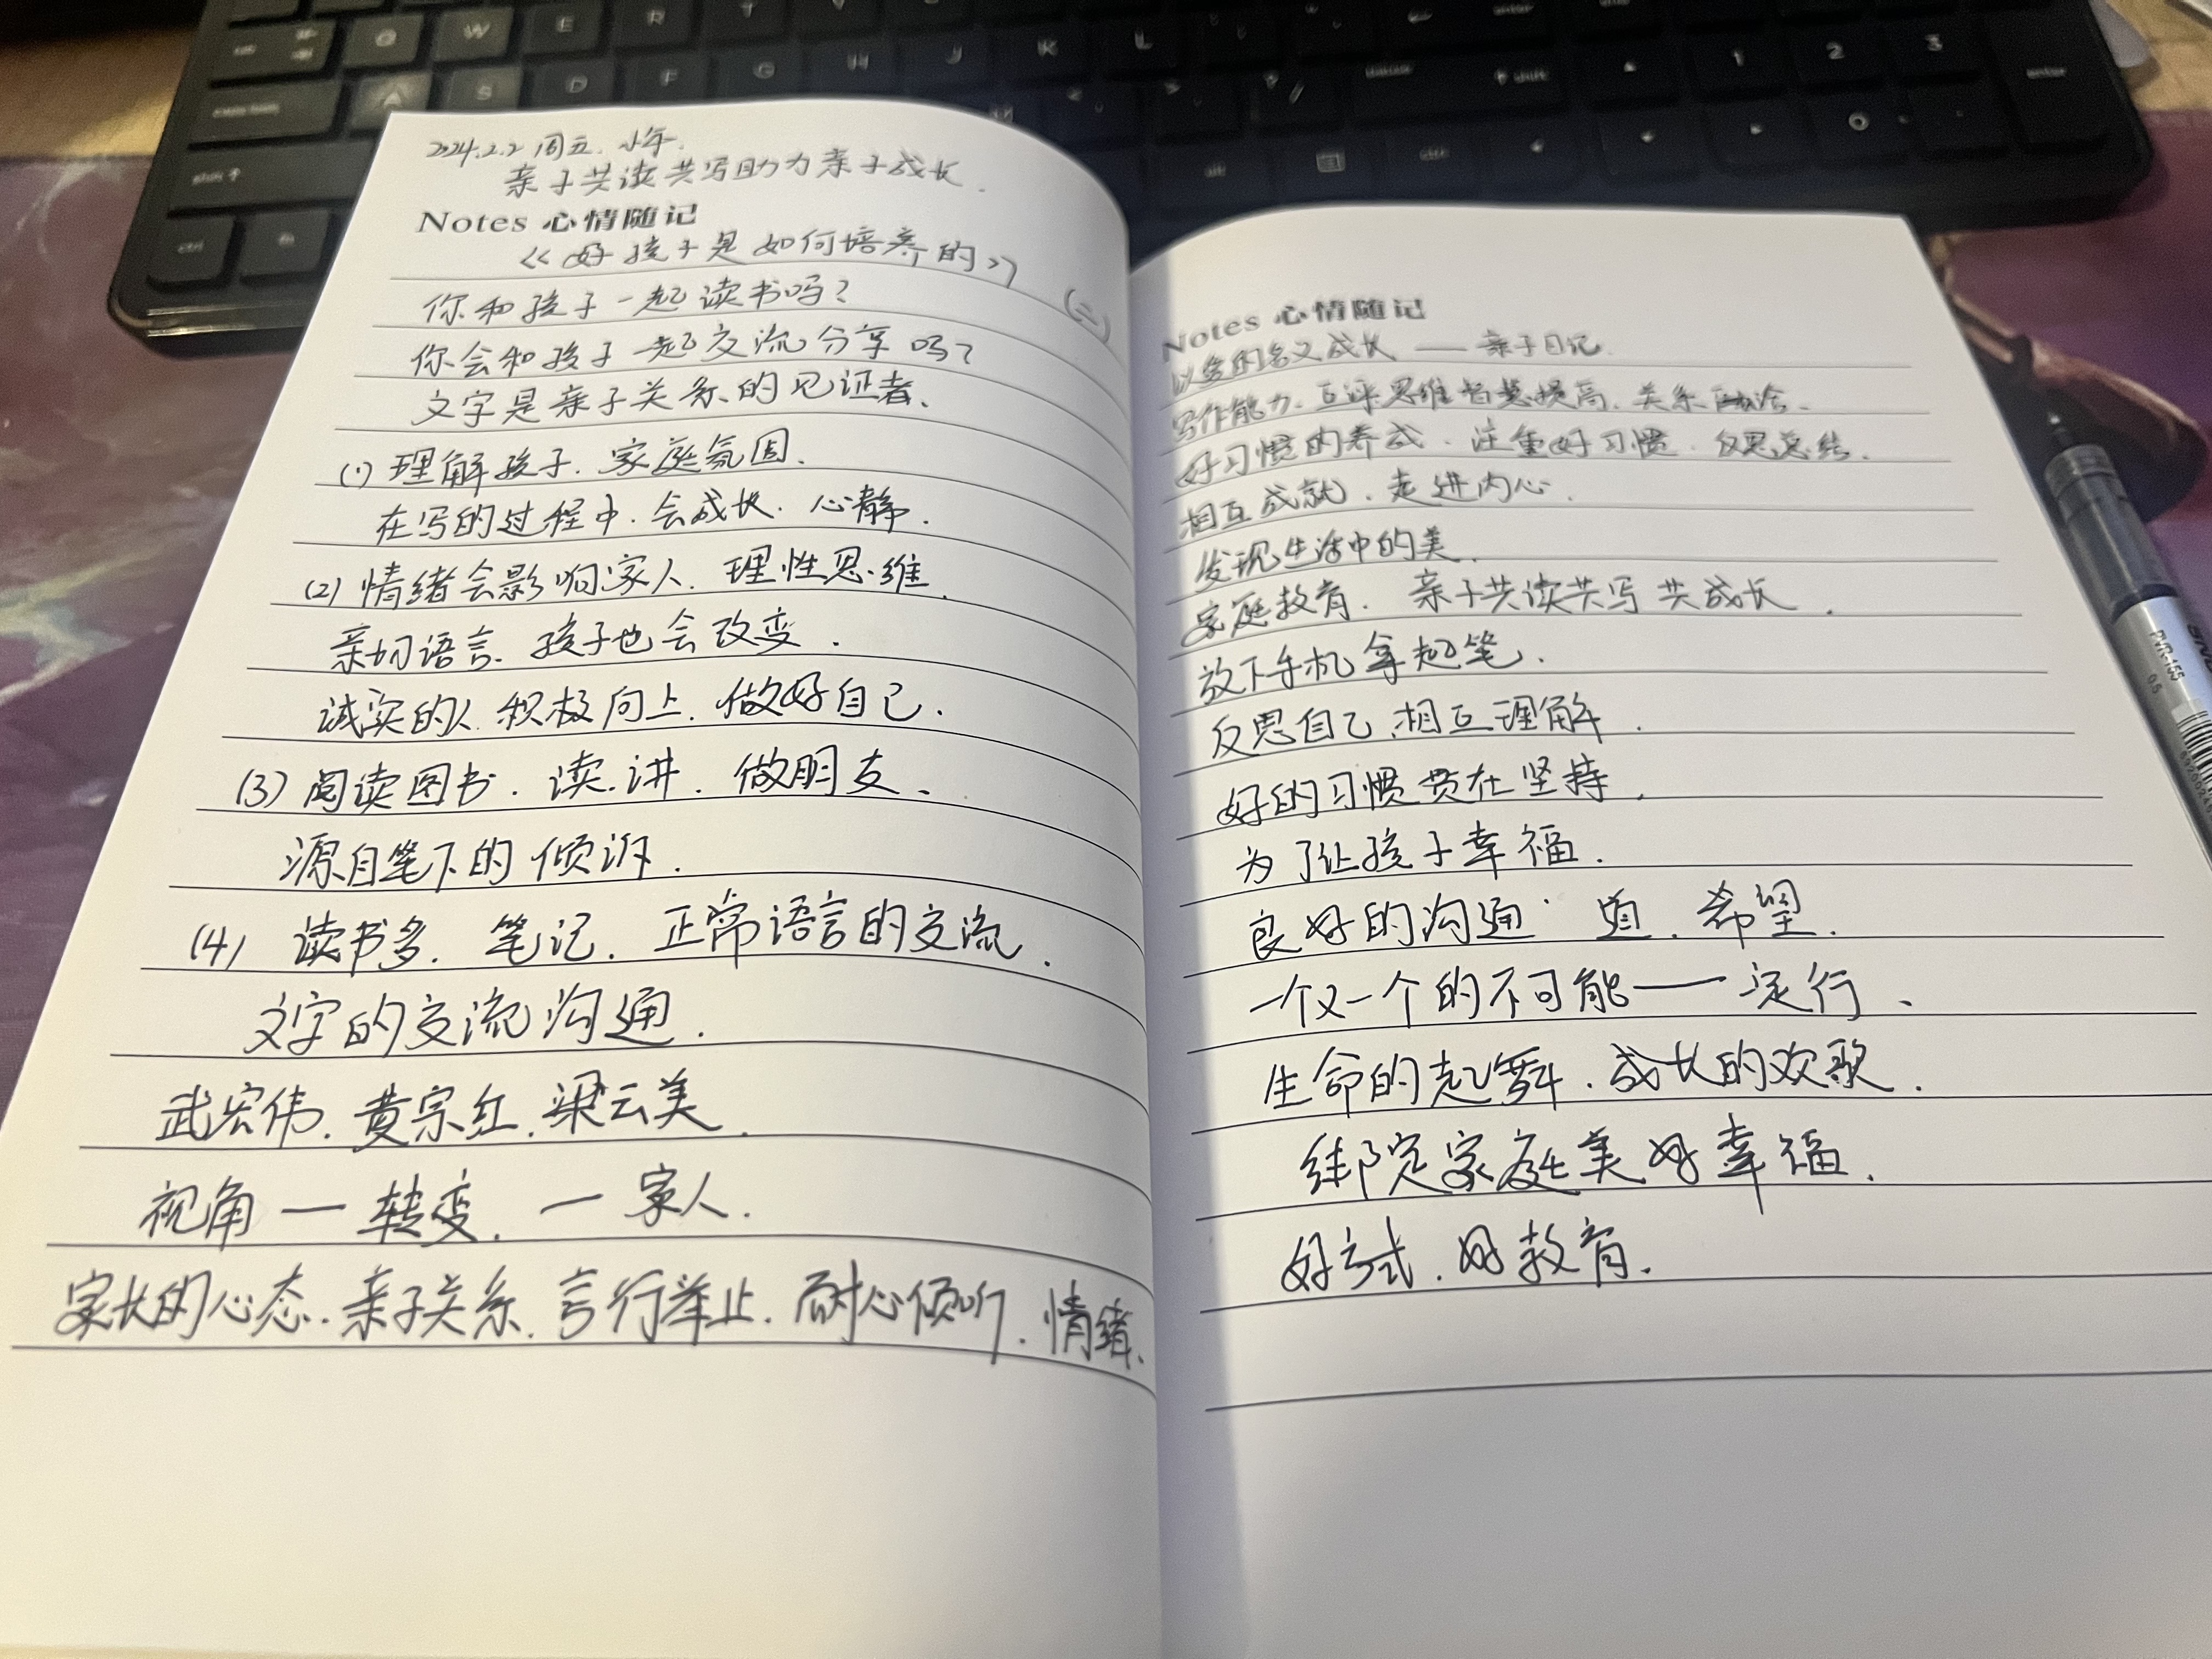 2024.2.2 周五. 小年.
亲子共读共写助力亲子成长.
Notes 心情随记
《好孩子是如何培养的》
(二)
你和孩子一起读书吗?
你会和孩子一起交流分享吗?
文字是亲子关系的见证者.
(1) 理解孩子. 家庭氛围.
在写的过程中. 会成长. 心静.
(2) 情绪会影响家人. 理性思维.
亲切语言. 孩子也会改变.
诚实的人. 积极向上. 做好自己.
(3) 阅读图书. 读. 讲. 做朋友.
源自笔下的倾诉.
(4) 读书多. 笔记. 正常语言的交流.
文字的交流沟通.
武宏伟. 黄宗红. 梁云美.
视角 — 转变. — 家人.
家长的心态. 亲子关系. 言行举止. 耐心倾听. 情绪.
Notes 心情随记
以爱的名义成长 —— 亲子日记.
写作能力. 互评思维智慧提高. 关系融洽.
好习惯的养成. 注重好习惯. 反思总结.
相互成就. 走进内心.
发现生活中的美.
家庭教育. 亲子共读共写共成长.
放下手机拿起笔.
反思自己. 相互理解.
好的习惯贵在坚持.
为了让孩子幸福.
良好的沟通. 道. 希望.
一个又一个的不可能 —— 行.
生命的起舞. 成长的欢歌.
绑定家庭美好幸福.
好方式. 好教育.